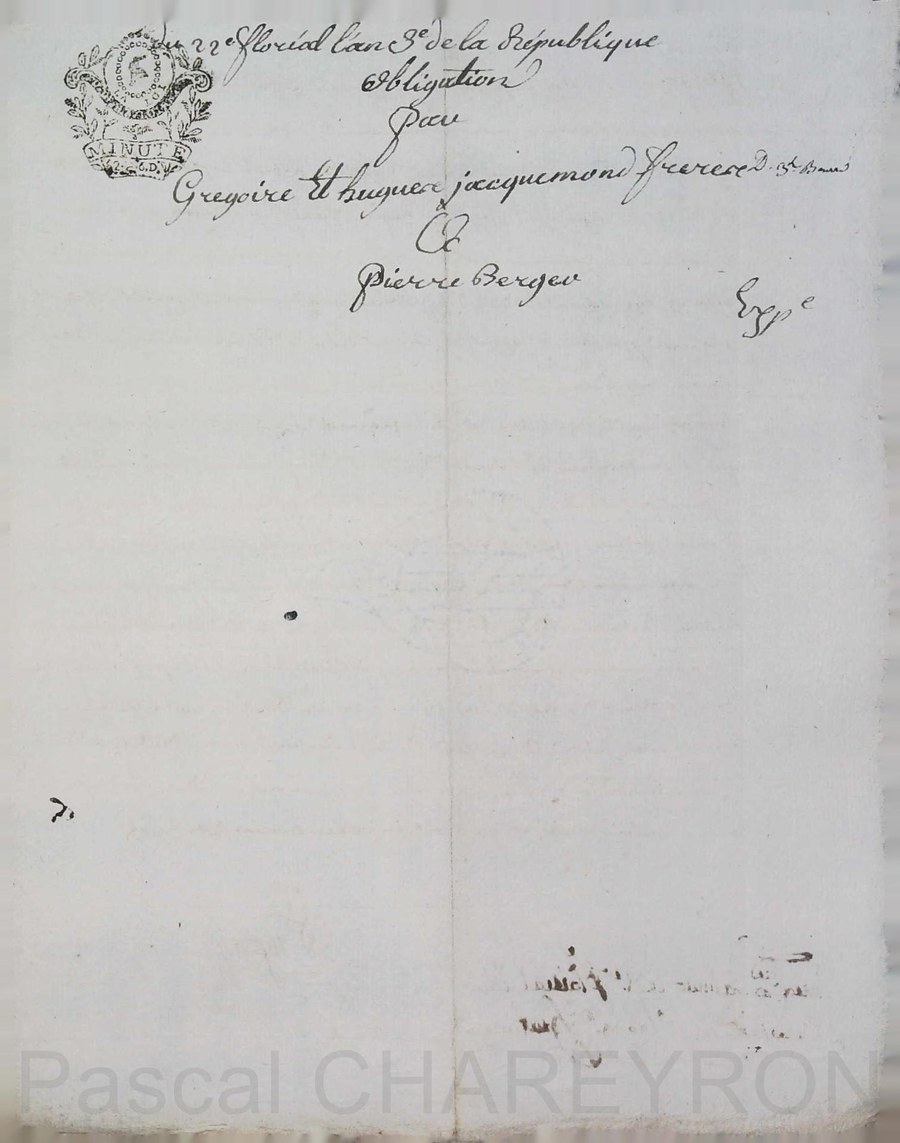 du 22e floréal l'an 3e de la République
obligation
par
Gregoire Et hugues jacquemond freres D. St
à
Pierre Berger
Expe
MINUTE
Pascal CHAREYRON